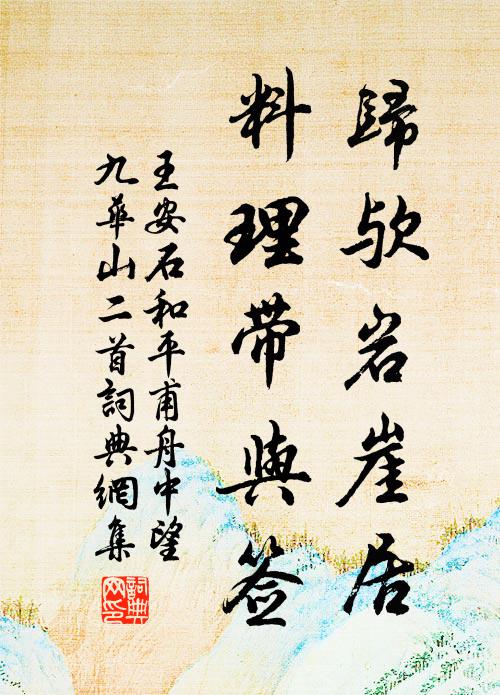 歸欤岩崖居
料理帶與签
王安石和平甫舟中望
九華山二首詞典網集
詞典网印